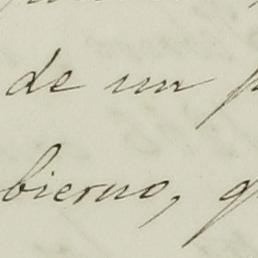 de un
bierno,